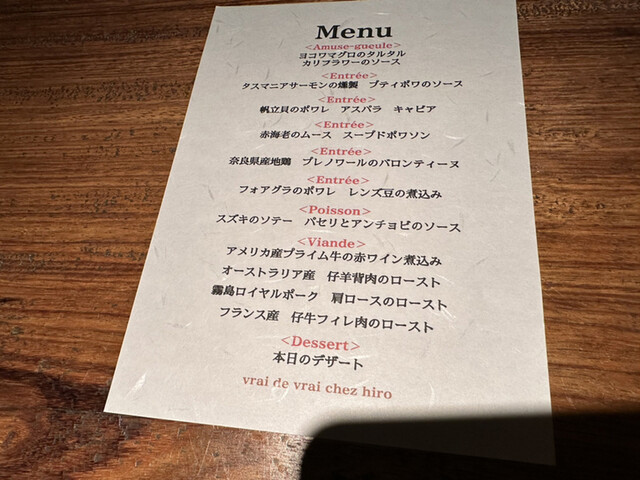 Menu
<Amuse-gueule>
ヨコワマグロのタルタル
カリフラワーのソース
<Entrée>
タスマニアサーモンの燻製　プティポワのソース
<Entrée>
帆立貝のポワレ　アスパラ　キャビア
<Entrée>
赤海老のムース　スープドポワソン
<Entrée>
奈良県産地鶏　プレノワールのバロンティーヌ
<Entrée>
フォアグラのポワレ　レンズ豆の煮込み
<Poisson>
スズキのソテー　パセリとアンチョビのソース
<Viande>
アメリカ産プライム牛の赤ワイン煮込み
オーストラリア産　仔羊背肉のロースト
霧島ロイヤルポーク　肩ロースのロースト
フランス産　仔牛フィレ肉のロースト
<Dessert>
本日のデザート
vrai de vrai chez hiro